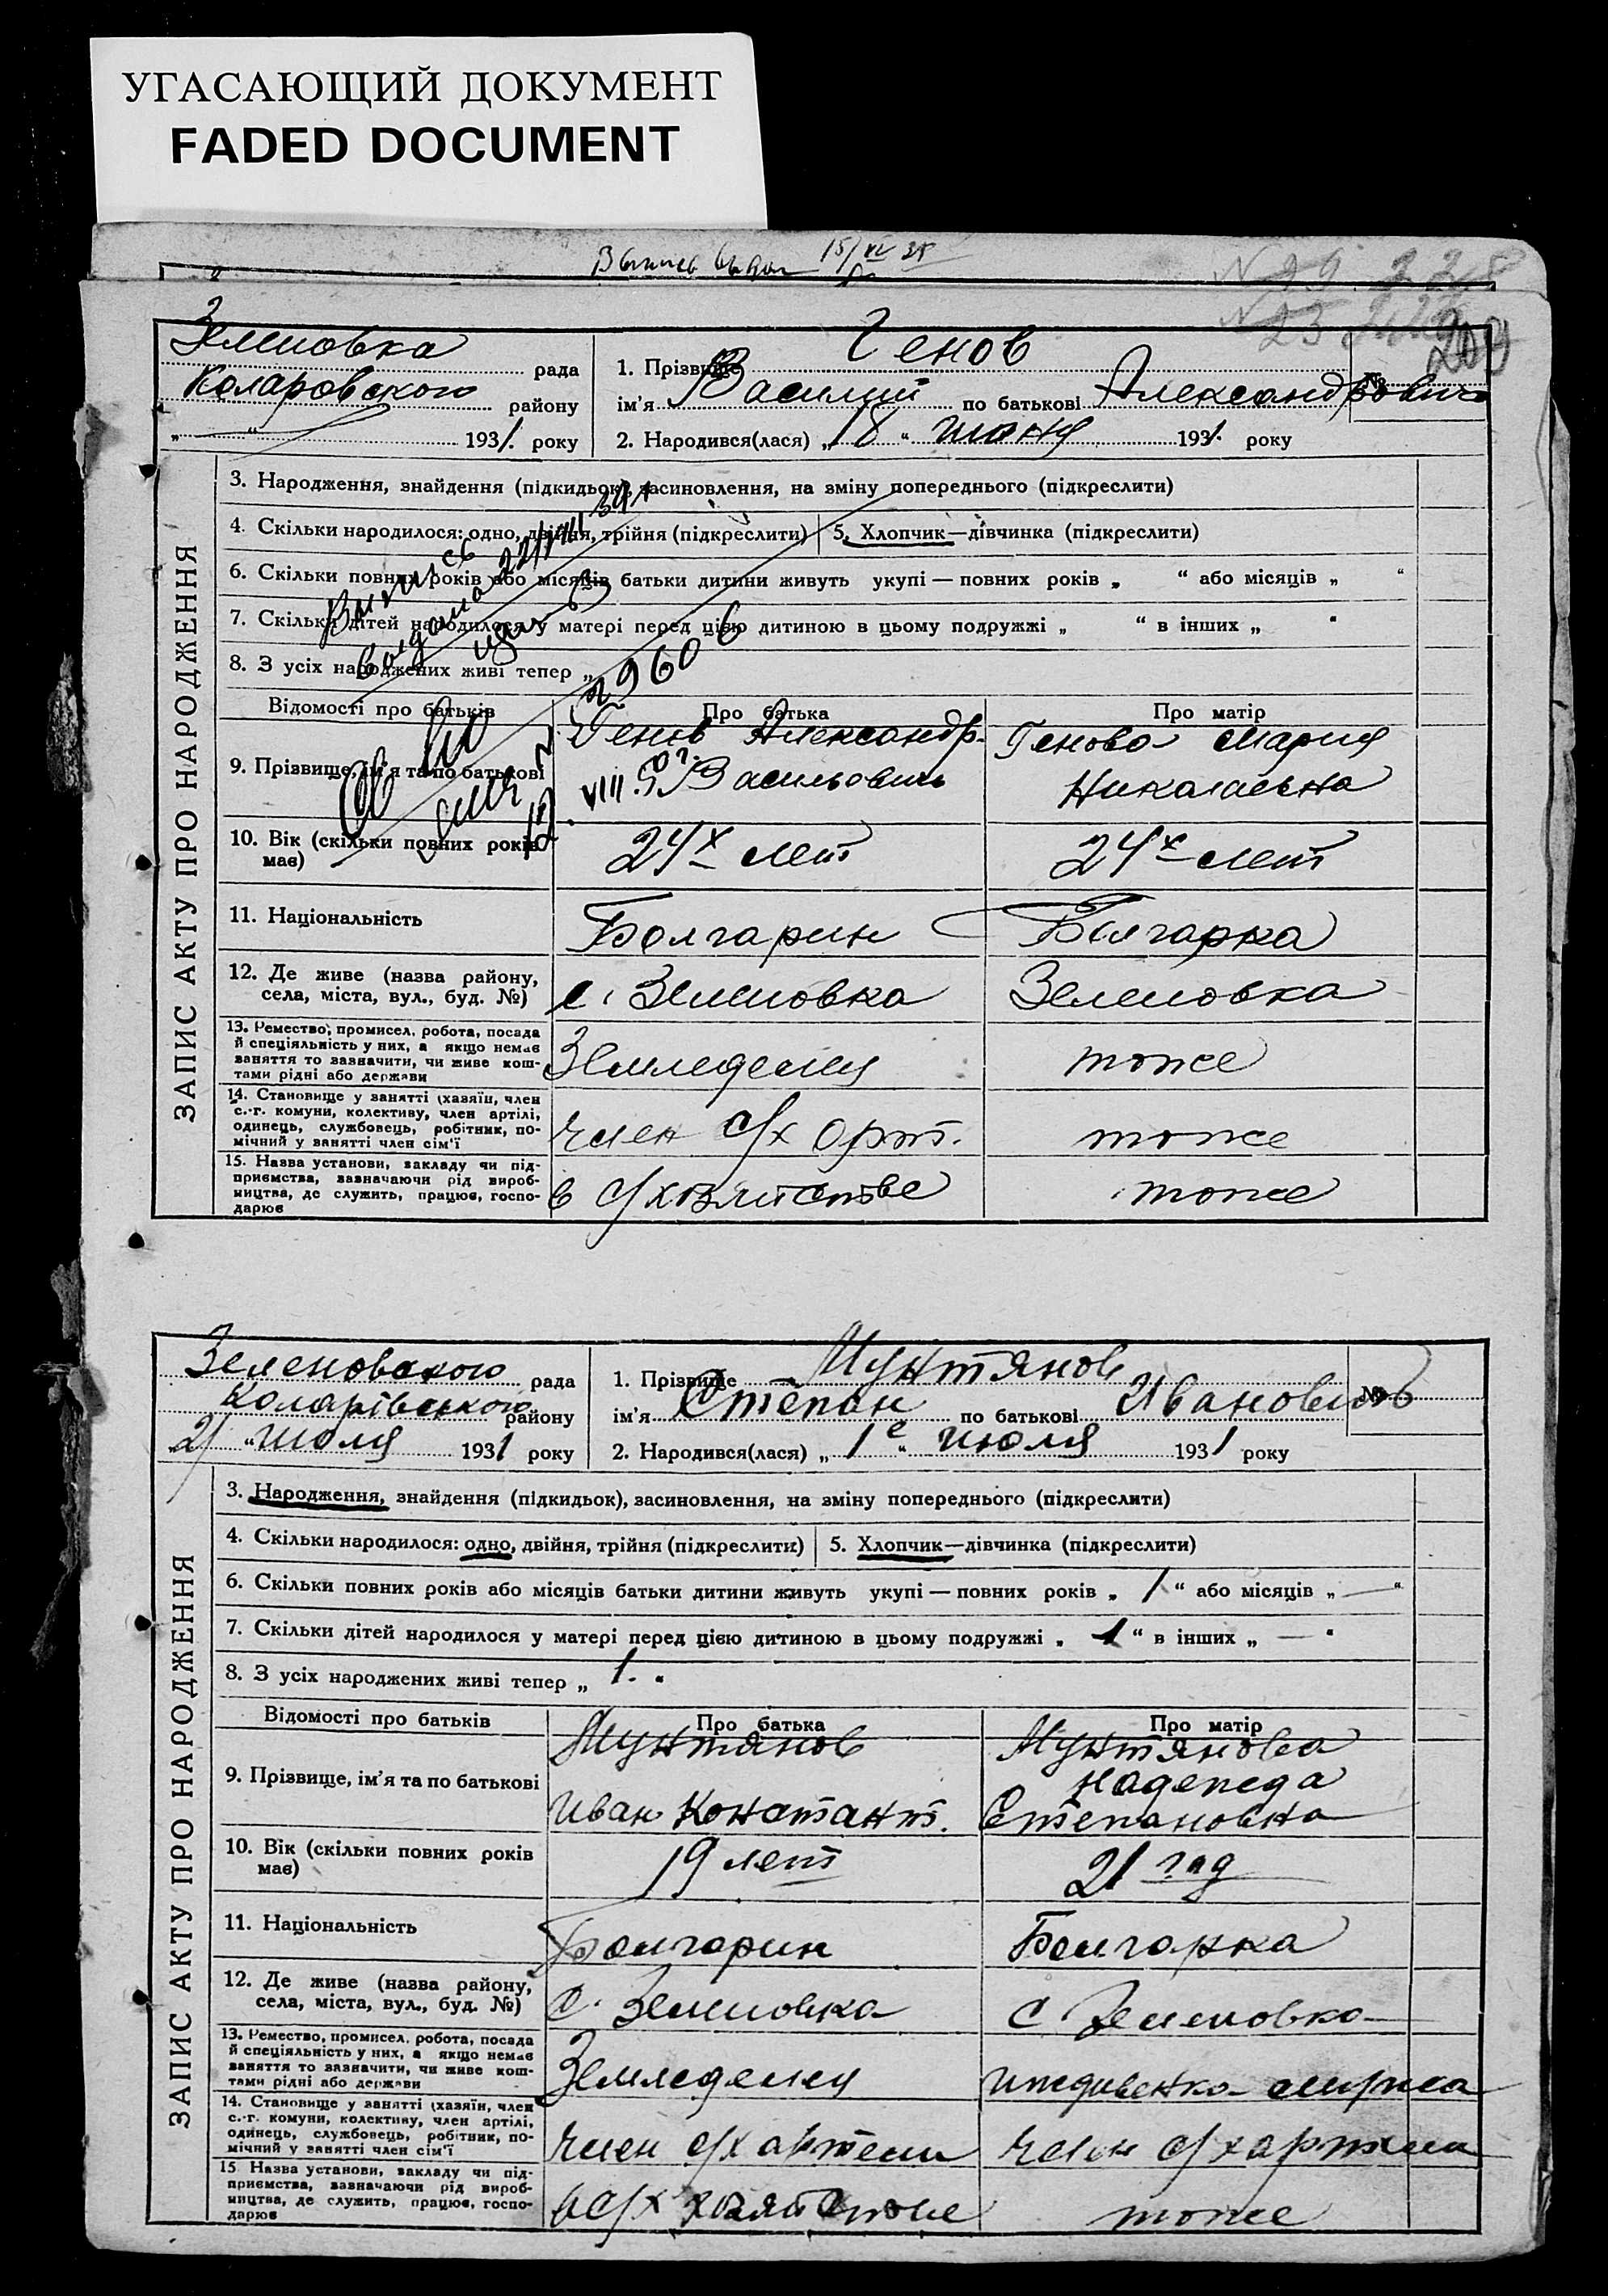 УГАСАЮЩИЙ ДОКУМЕНТ
FADED DOCUMENT
15/XI 35
N 29 228
N 23
209
Зеленовка рада
Коларовского району
„ — “ 1931. року
1. Прізвище Генов №
ім'я Василий по батькові Александрович
2. Народився(лася) „18“ июня 1931. року
ЗАПИС АКТУ ПРО НАРОДЖЕННЯ
3. Народження, знайдення (підкидьок), засиновлення, на зміну попереднього (підкреслити)
4. Скільки народилося: одно, двійня, трійня (підкреслити) 5. Хлопчик—дівчинка (підкреслити)
6. Скільки повних років або місяців батьки дитини живуть укупі — повних років „ “ або місяців „ “
7. Скільки дітей народилося у матері перед цією дитиною в цьому подружжі „ “ в інших „ “
8. З усіх народжених живі тепер „
Выпись
выдана 22/VIII 39 г
Св во
VIII 50 г.
Відомості про батьків Про батька Про матір
9. Прізвище, ім'я та по батькові
Генов Александр. Васильович
Генова Мария Николаевна
10. Вік (скільки повних років має) 24х лет 24х лет
11. Національність Болгарин Болгарка
12. Де живе (назва району, села, міста, вул., буд. №) с. Зеленовка Зеленовка
13. Ремество, промисел, робота, посада й спеціяльність у них, а якщо немає заняття то зазначити, чи живе коштами рідні або держави
Земледелец тоже
14. Становище у занятті (хазяїн, член с.-г. комуни, колективу, член артілі, одинець, службовець, робітник, помічний у занятті член сім'ї
член с/х арт. тоже
15. Назва установи, закладу чи підприємства, зазначаючи рід виробництва, де служить, працює, господарює
в с/хозяйстве тоже
Зеленовского рада
Коларівського району
21 „июля 1931 року
1. Прізвище Мунтянов №
ім'я Степан по батькові Иванович
2. Народився(лася) „1е“ июля 1931 року
ЗАПИС АКТУ ПРО НАРОДЖЕННЯ
3. Народження, знайдення (підкидьок), засиновлення, на зміну попереднього (підкреслити)
4. Скільки народилося: одно, двійня, трійня (підкреслити) 5. Хлопчик—дівчинка (підкреслити)
6. Скільки повних років або місяців батьки дитини живуть укупі — повних років „ 1 “ або місяців „ — “
7. Скільки дітей народилося у матері перед цією дитиною в цьому подружжі „ 1 “ в інших „ — “
8. З усіх народжених живі тепер „ 1. “
Відомості про батьків Про батька Про матір
9. Прізвище, ім'я та по батькові
Мунтянов Иван Констант.
Мунтянова Надежда Степановна
10. Вік (скільки повних років має) 19 лет 21 год
11. Національність Болгарин Болгарка
12. Де живе (назва району, села, міста, вул., буд. №) с. Зеленовка с. Зеленовка
13. Ремество, промисел, робота, посада й спеціяльність у них, а якщо немає заняття то зазначити, чи живе коштами рідні або держави
Земледелец иждивенка мужа
14. Становище у занятті (хазяїн, член с.-г. комуни, колективу, член артілі, одинець, службовець, робітник, помічний у занятті член сім'ї
член с/х артели член с/х артели
15. Назва установи, закладу чи підприємства, зазначаючи рід виробництва, де служить, працює, господарює
в с/х хозяйстве тоже